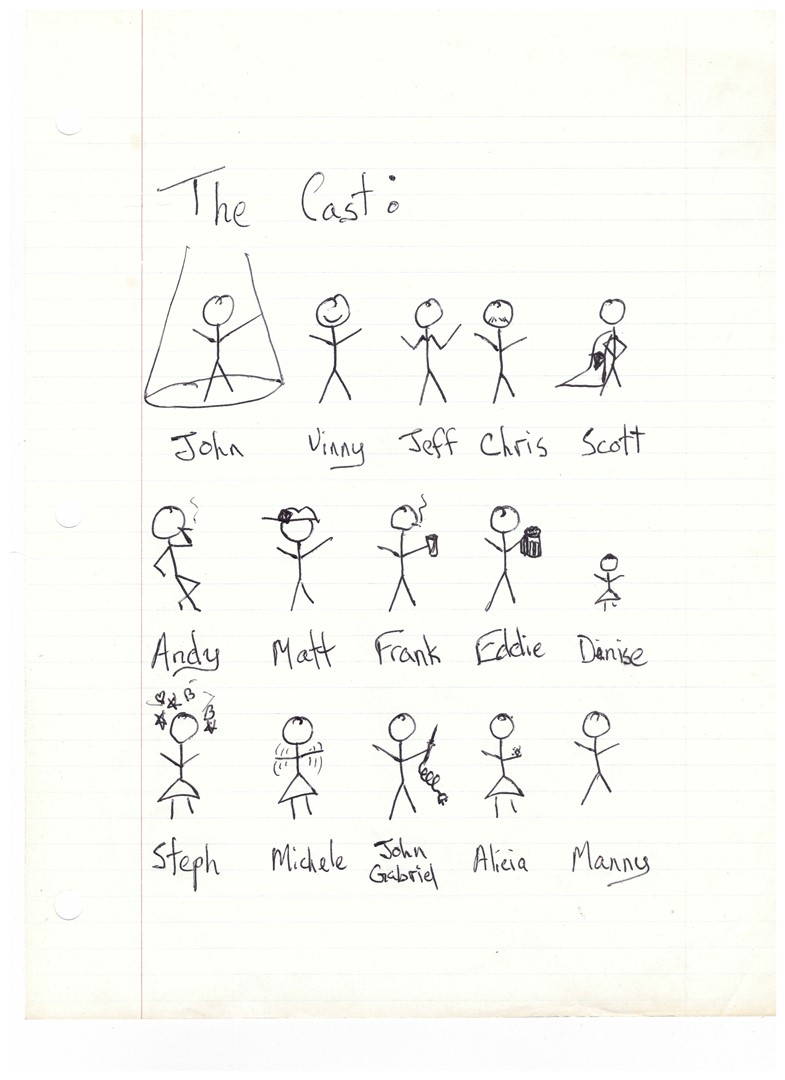 The Cast:
John Vinny Jeff Chris Scott
Andy Matt Frank Eddie Denise
Steph Michele John Gabriel Alicia Manny